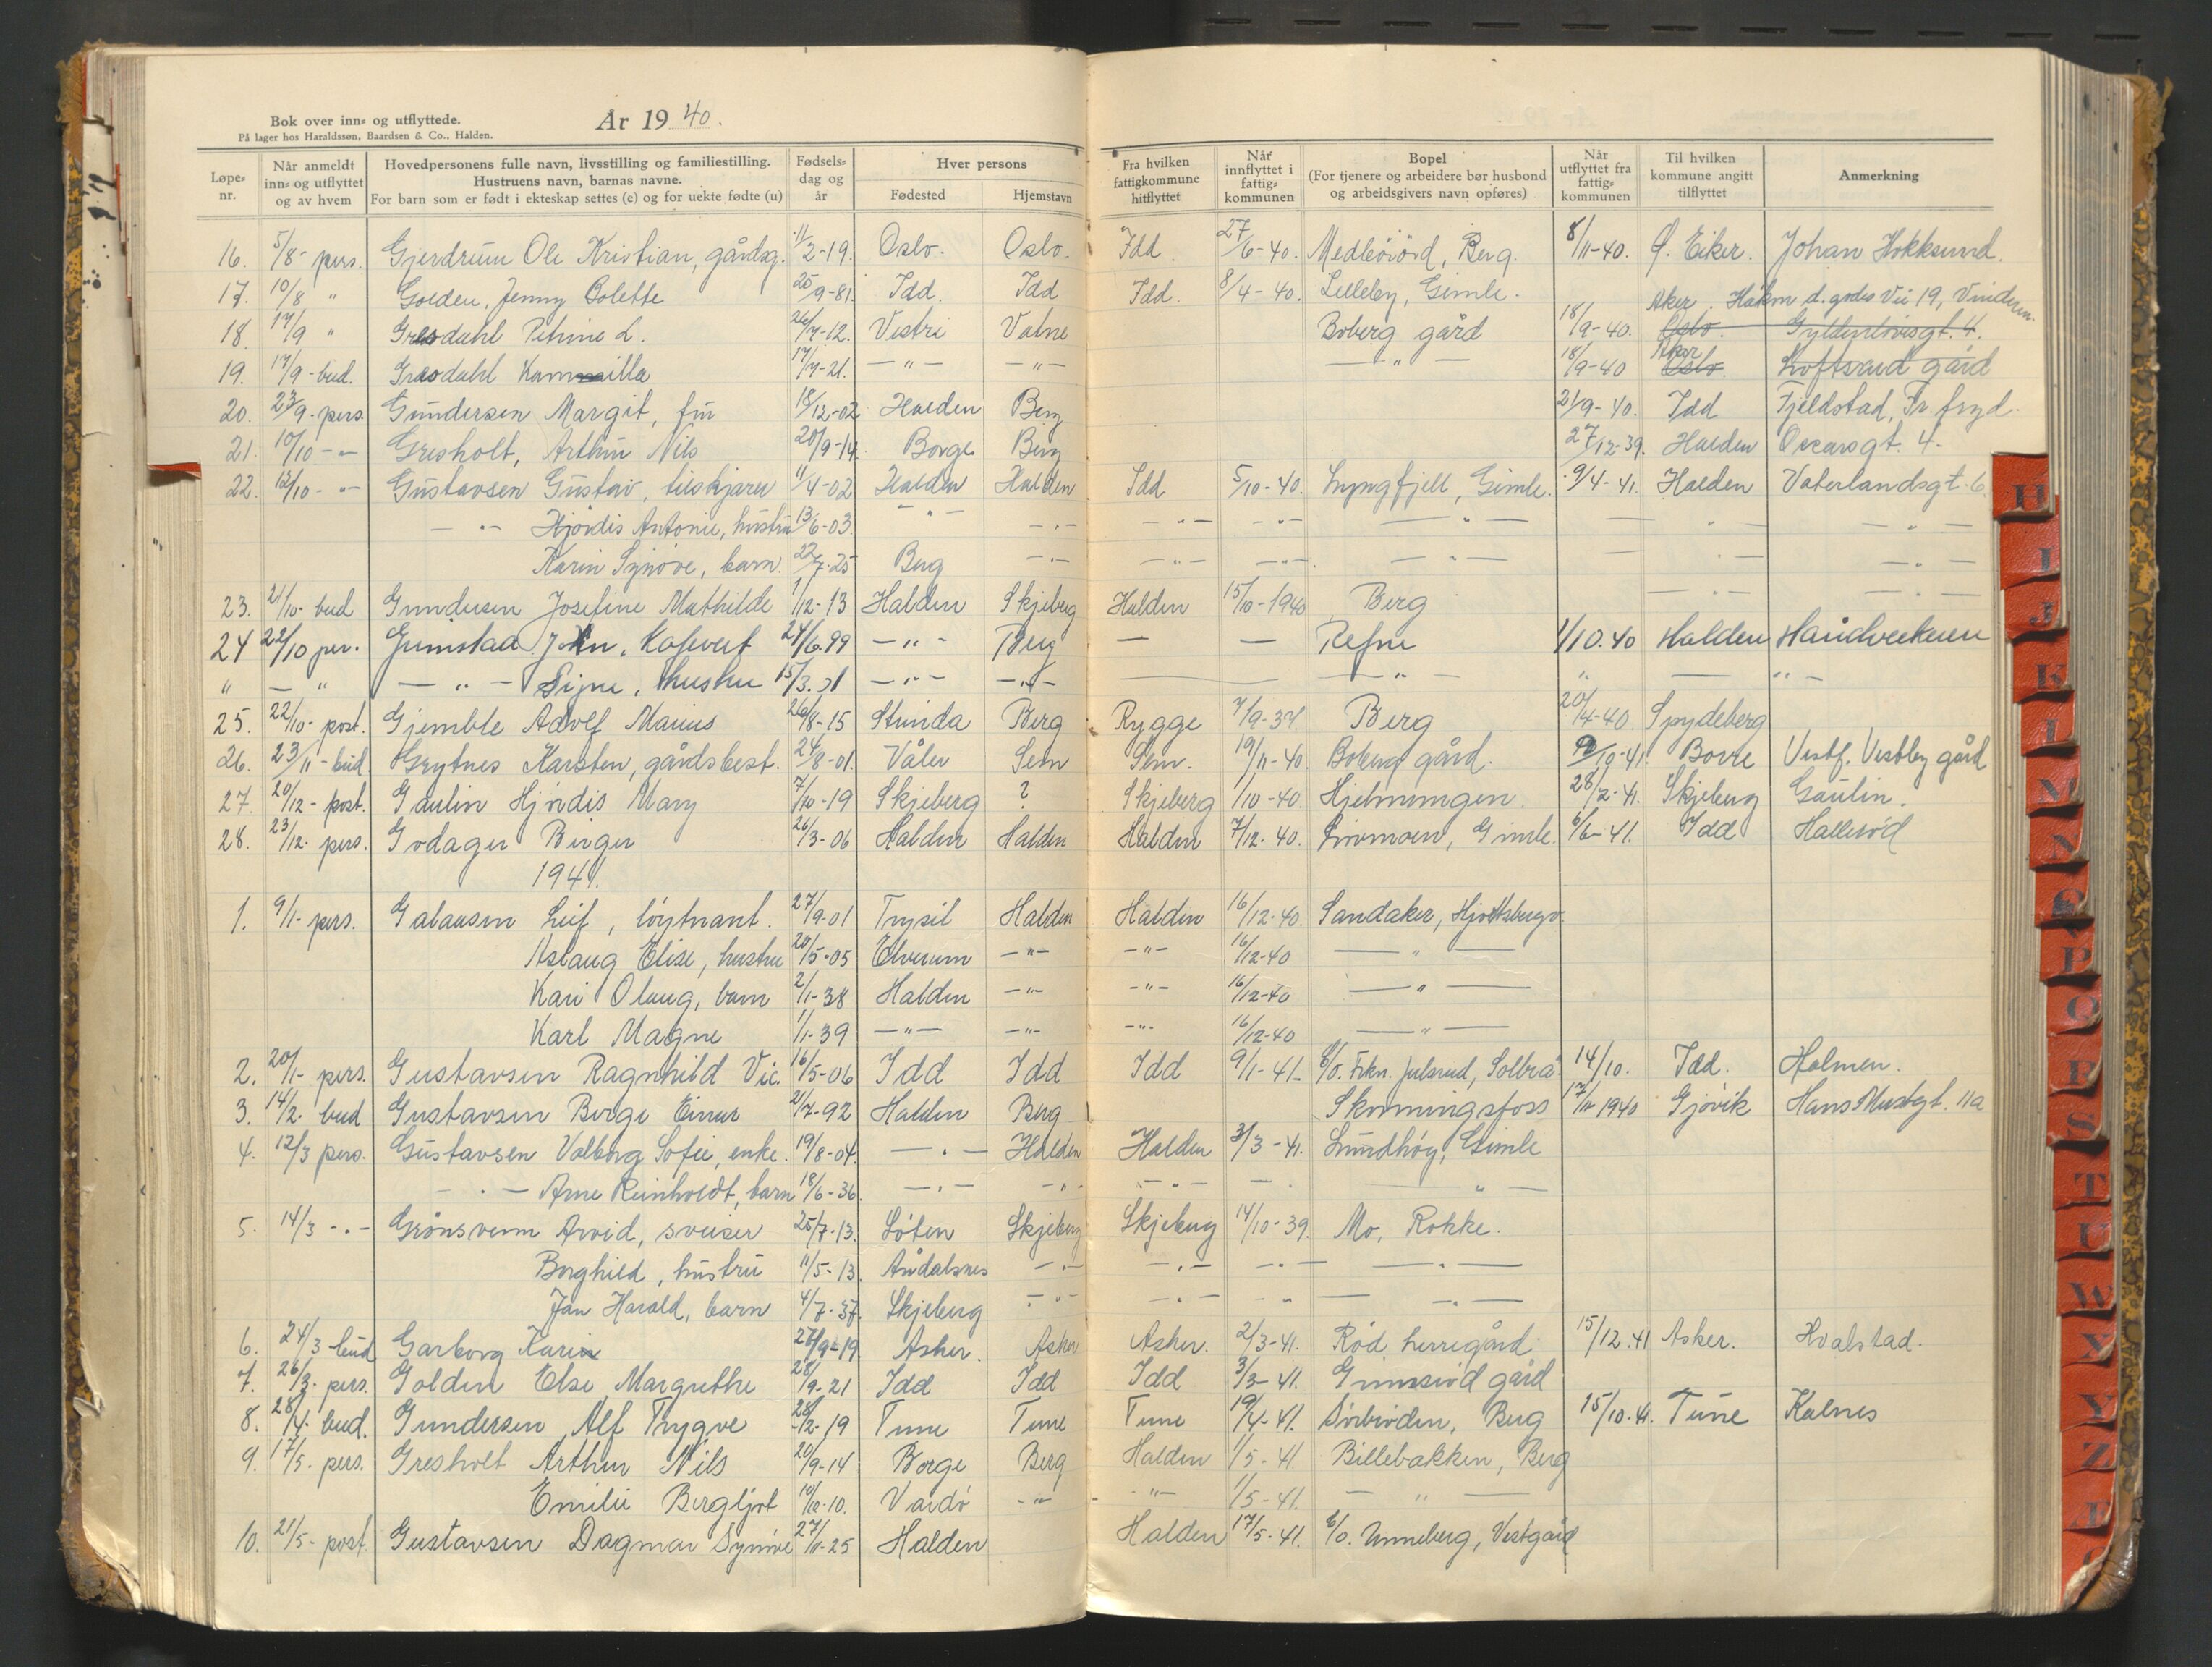 Bok over inn- og utflyttede.
På lager hos Haraldssøn, Baardsen & Co., Halden.
År 1940.
Løpe-nr. Når anmeldt inn- og utflyttet og av hvem Hovedpersonens fulle navn, livsstilling og familiestilling. Hustruens navn, barnas navne. For barn som er født i ekteskap settes (e) og for uekte fødte (u) Fødsels-dag og år Hver persons Fødested Hjemstavn Fra hvilken fattigkommune hitflyttet Når innflyttet i fattig-kommunen Bopel (For tjenere og arbeidere bør husbond og arbeidsgivers navn opføres) Når utflyttet fra fattig-kommunen Til hvilken kommune angitt tilflyttet Anmerkning
16. 5/8 - pers. Gjerdrum Ole Kristian, gårdsg. 11/2-19. Oslo. Oslo. Idd. 27/6-40. Berg. 8/11-40. Ø. Eiker. Johan Hokksund.
17. 10/8 " Golden, Jenny Colette 25/9-81. Idd. Idd Idd. 8/4-40. Lilleby, Gimle.
Aker. 19, Vinderen.
18. 17/9 " Gresdahl Petrine L. 26/7-12. Vestre Vatne Boberg gård 18/9-40. Oslo. Gyldenløvesgt. 4.
19. 17/9 - bud. Gresdahl Kamilla 17/7-21. - " - - " - - " - 18/9-40 Oslo Aker Loftsrud gård
20. 23/9 - pers. Gundersen Margit, fru 18/12-02 Halden Berg 21/9-40. Idd Fjeldstad, Tr.fryd.
21. 10/10 - " - Gresholt, Arthur Nils 20/9-14 Borge Berg 27/12-39. Halden Oscarsgt. 4.
22. 12/10 - " - Gustavsen Gustav, tilskjærer 11/4-02 Halden Halden Idd 5/10-40. Lyngfjell, Gimle. 9/4-41. Halden Vaterlandsgt. 6.
- " - Hjørdis Antonie, hustru 13/6-03. - " - - " - - " - - " - - " - - " - - " -
Karin Synøve, barn. 22/7-25 Berg - " - - " - - " - - " - - " - - " -
23. 21/10 - bud Gundersen Josefine Mathilde 1/12-13 Halden Skjeberg Halden 15/10-1940 Berg - " - - " -
24 22/10 per. Grimstad John, 24/6.99 - " - Berg - - Refne 1/10.40 Halden Håndverkeren
" - " - " - Signe, hustru 15/3.01 - " - - " - - " - " " -
25. 22/10 - post. Gjemble Adolf Marius 26/8-15 Berg Rygge 7/9-37 Berg 20/4-40 Spydeberg
26. 23/11 - bud. Grytnes Karsten, gårdsbest. 24/8-01. Våler Sem Sem. 19/11-40 Boberg gård. /10-41. Borre Vestf. Vestby gård
27. 20/12 - post. Gaulin Hjørdis Mary 7/10-19 Skjeberg ? Skjeberg 1/10-40. Hjelmungen. 28/2-41. Skjeberg Gaulin.
28. 23/12. pers. Godager Birger 26/3-06 Halden Halden Halden 7/12.40. Gimle. 6/6-41. Idd Hallerød
1941.
1. 9/1 - pers. Galaasen Leif, løytnant. 27/9-01 Trysil Halden Halden 16/12.40 Sandaker, Hjortsbergv.
Aslaug Elise, hustru 20/5-05 Elverum - " - - " - 16/12-40 - " -
Kari Olaug, barn 2/1-38 Halden - " - - " - 16/12-40 - " -
Karl Magne 1/1-39 - " - - " - - " - 16/12-40 - " -
2. 20/1 - pers. Gustavsen Ragnhild Vic. 16/5-06 Idd Idd Idd 9/1-41. c/o. Frkn. Julsrud, Solbrå 14/10. Idd. Holmen.
3. 14/2. bud Gustavsen Borge Einar 21/7-92 Halden Berg Skonningsfoss 17/11 1940 Gjøvik Hans Mustsgt. 11a
4. 12/3 pers. Gustavsen Valborg Sofie, enke. 19/8-04. - " - Halden Halden 3/3-41. Lundhøy, Gimle
- " - Arne Reinholdt, barn 18/6-36. - " - - " - - " - - " - " -
5. 14/3 - " - Grønsveen Arvid, sveiser 25/7-13. Løten Skjeberg Skjeberg 14/10-39. Mo, Rokke.
Borghild, hustru 11/5-13 Åndalsnes - " - - " - - " - - " -
Jan Harald, barn 4/7-37. Skjeberg - " - - " - " - " -
6. 24/3 - bud Garborg Karin 27/9-19 Asker. Asker Asker. 2/3-41. Rød herregård. 15/12.41 Asker. Hvalstad.
7. 26/3 - pers. Golden Else Margrethe 28/9-21 Idd Idd Idd 3/3-41. Grimsrød gård
8. 28/4 - bud. Gundersen Alf Trygve 28/12-19 Tune Tune Tune 19/4-41. Sørbrøden, Berg 15/10-41. Tune Kalnes
9. 17/5 - pers. Gresholt Arthur Nils 20/9-14 Borge Berg Halden 1/5-41 Billebakken, Berg
Emilie Bergljot 10/12-10. Vardø - " - - " - 1/5-41. - " -
10. 21/5 - post. Gustavsen Dagmar Synnøve 27/11-25 Halden Halden 17/5-41. c/o. Unneberg, Vestgård
H
I
J
K
L
M
N
O
P
Q
R
S
T
U
W
X
Y
Z
Æ